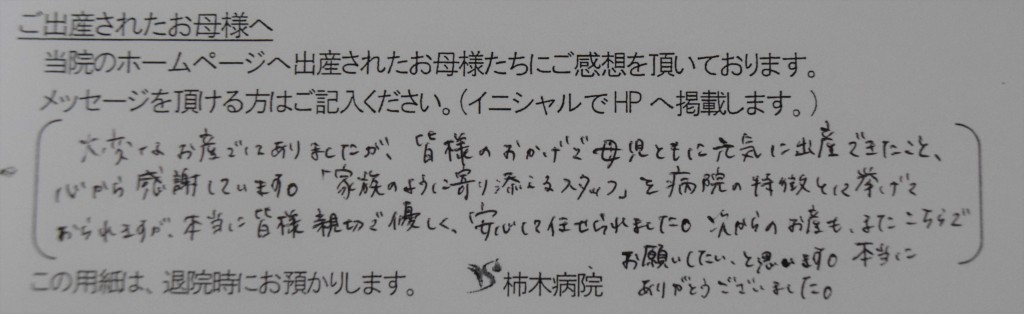 ご出産されたお母様へ
当院のホームページへ出産されたお母様たちにご感想を頂いております。
メッセージを頂ける方はご記入ください。(イニシャルでHPへ掲載します。)
大変なお産ではありましたが、皆様のおかげで母児ともに元気に出産できたこと、
心から感謝しています。「家族のように寄り添えるスタッフ」を病院の特徴として挙げて
おられますが、本当に皆様親切で優しく、安心して任せられました。次からのお産も、またこちらで
お願いしたい、と思います。本当に
ありがとうございました。
この用紙は、退院時にお預かりします。 柿木病院